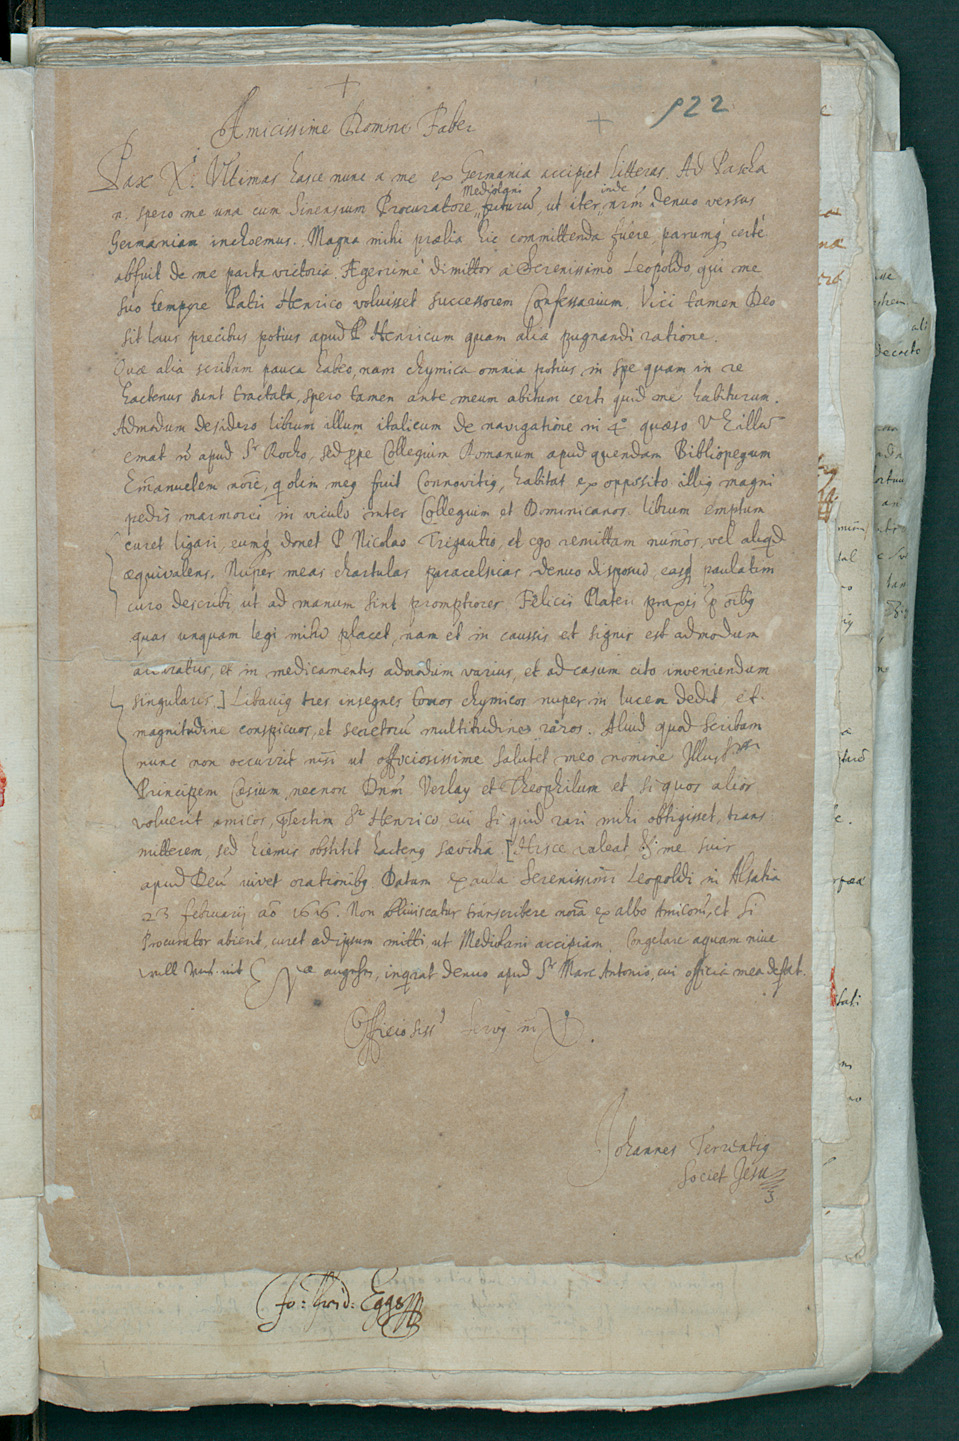 922
Amicissime Domine Faber
Pax Xi. Ultimas hasce nunc a me ex Germania accipiet litteras. Ad Pascha
n. spero me una cum Sinensium Procuratore Mediolani futurũ, ut iter inde nr̃m denuo versus
Germaniam inchoemus. Magna mihi prælia hic committenda fuere, parumq́ certe
abfuit de me parta victoria. Ægerrime dimittor a Serenissimo Leopoldo qui me
suo tempore Patri Henrico voluisset successorem Confessarium. Vici tamen Deo
sit laus precibus potius apud P Henricum quam alia pugnandi ratione.
Quæ alia scribam pauca habeo, nam chymica omnia potius in spe quam in re
hactenus sunt tractata, spero tamen ante meum abitum certi quid me habiturum.
Admodum desidero librum illum italicum de navigatione in 4o quæso V E illum
emat nõ apud Sr Rocho, sed ꝓpe Collegium Romanum apud quendam Bibliopegum
Emanuelem noĩe, q olim meg fuit Connovitiꝰ, habitat ex opposito illiꝰ magni
pedis marmorei in viculo inter Collegium et Dominicanos. librum emptum
curet ligari, eumq́ donet P Nicolao Trigautio, et ego remittam num̃os, vel aliqd
æquivalens. Nuper meas chartulas paracelsicas denuo disposui, easq́ paulatim
curo describi, ut ad manum sint promptiores. Felicis Plateri praxis ex oĩbꝰ
quas unquam legi mihi placet, nam et in caussis et signis est admodum
accuratus, et in medicamentis admodum varius, et ad casum cito inveniendum
singularis.] Libaviꝰ tres insignes tomos chymicos nuper in lucem dedit et
magnitudine conspicuos, et secretorũ multitudine raros. Aliud quod scribam
nunc non occurrit nisi ut officiosissime salutet meo nomine Illust
Principem Cæsium, necnon Dnm̃ Verlay et Theophilum et si quos alios
voluerit amicos, p̱sertim Sr Henrico cui si quid rari mihi obtigisset, trans
mitterem, sed hiemis obstitit hactenꝰ sævitia. [Hisce valeat et me suis
apud Deũ iuvet orationibꝰ Datum ex aula Serenissimi Leopoldi in Alsatia
23 februarij aõ 1616. Non obliviscatur transcribere noĩa ex albo Amicorũ, et si
Procurator abierit, curet ad ipsum mitti ut Mediolani accipiam. Congelare aquam nive
æ angustijs, inqirat denuo apud Sr Marc Antonio, cui officia mea defert.
Officiosissꝰ servꝰ in Xo.
Johannes Terrentiꝰ
Societ Jesu
Jo: Frid: Eggs